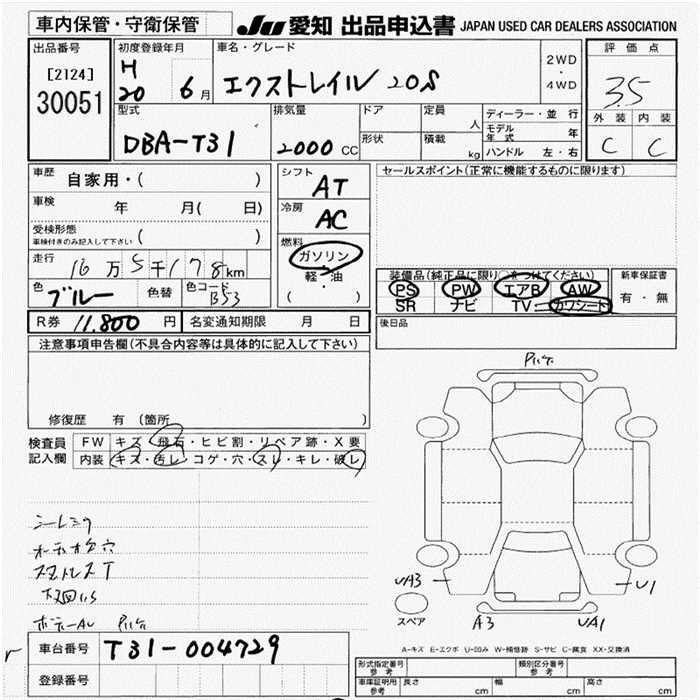 車内保管・守衛保管
JU 愛知 出品申込書 JAPAN USED CAR DEALERS ASSOCIATION
出品番号 初度登録年月 車名・グレード 2WD・4WD 評価点
[2124] H 20 6月 エクストレイル 20S 3.5
30051
型式 排気量 ドア 定員 人 ディーラー・並行 外装 内装
DBA-T31 2000 CC 形状 積載 kg モデル年式 年 C C
ハンドル 左・右
車歴 自家用・( ) シフト AT セールスポイント(正常に機能するものに限ります)
車検 年 月( 日) 冷房 AC
受検形態 ( )
車検付きのみ記入して下さい
燃料 ガソリン・軽・油 ( )
走行 16万5千178km
装備品(純正品に限り○をつけてください) 新車保証書
色 ブルー 色替 色コード B53 PS PW エアB AW 有・無
SR ナビ TV カワシート
R券 11,800円 名変通知期限 月 日 後日品
注意事項申告欄(不具合内容等は具体的に記入して下さい)
修復歴 有 (箇所 )
検査員記入欄 FW キズ・飛石・ヒビ割・リペア跡・X要
内装 キズ・汚レ・コゲ・穴・スレ・キレ・破レ
シートミク
スタトルスT
ボデーAU Pハゲ
Pハゲ
UA3 U1
スペア A3 UA1
A-キズ E-エクボ U-凹み W-補修跡 S-サビ C-腐食 XX-交換済
車台番号 T31-004729
登録番号
形式指定番号 参考 類別区分番号 参考
車庫証明用 参考 長さ cm 幅 cm 高さ cm